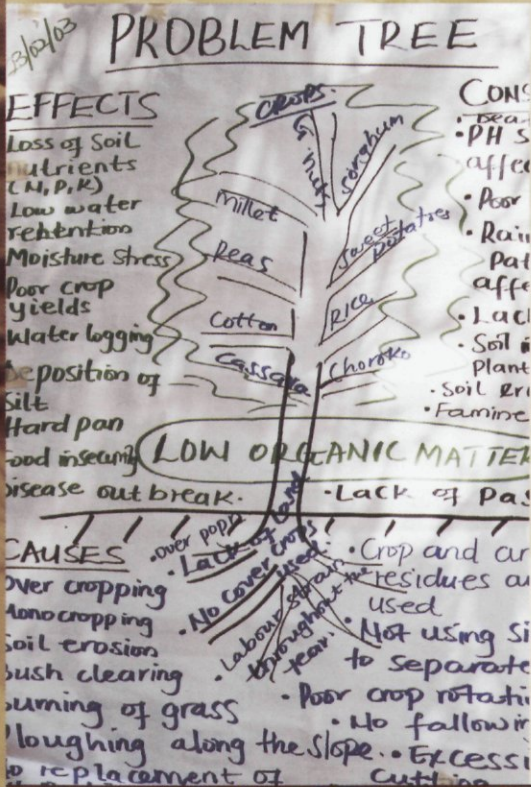 23/02/03
PROBLEM TREE
EFFECTS
Loss of Soil
nutrients
(N, P, K)
Low water
retention
Moisture Stress
Poor crop
yields
Water logging
Deposition of
Silt
Hard pan
Food insecurity
Disease out break.
CROPS
G. nuts
Sorghum
Millet
Sweet potatoes
Peas
Rice
Cotton
Cassava
Choroko
CONS
PH S
affe
• Poor
• Rain
Pat
affe
• Lac
• Soil i
Plant
• Soil Er
• Famine
LOW ORGANIC MATTER
• Lack of Pa
CAUSES
Over cropping
Monocropping
Soil erosion
Bush clearing
burning of grass
Ploughing along the slope.
No replacement of
• Over popn
• Lack of land
• No cover crops
used
• Labour strain
throughout the
year.
• Crop and an
residues a
used
• Not using Si
to separate
• Poor crop rotati
• No fallowin
• Excessi
cutting